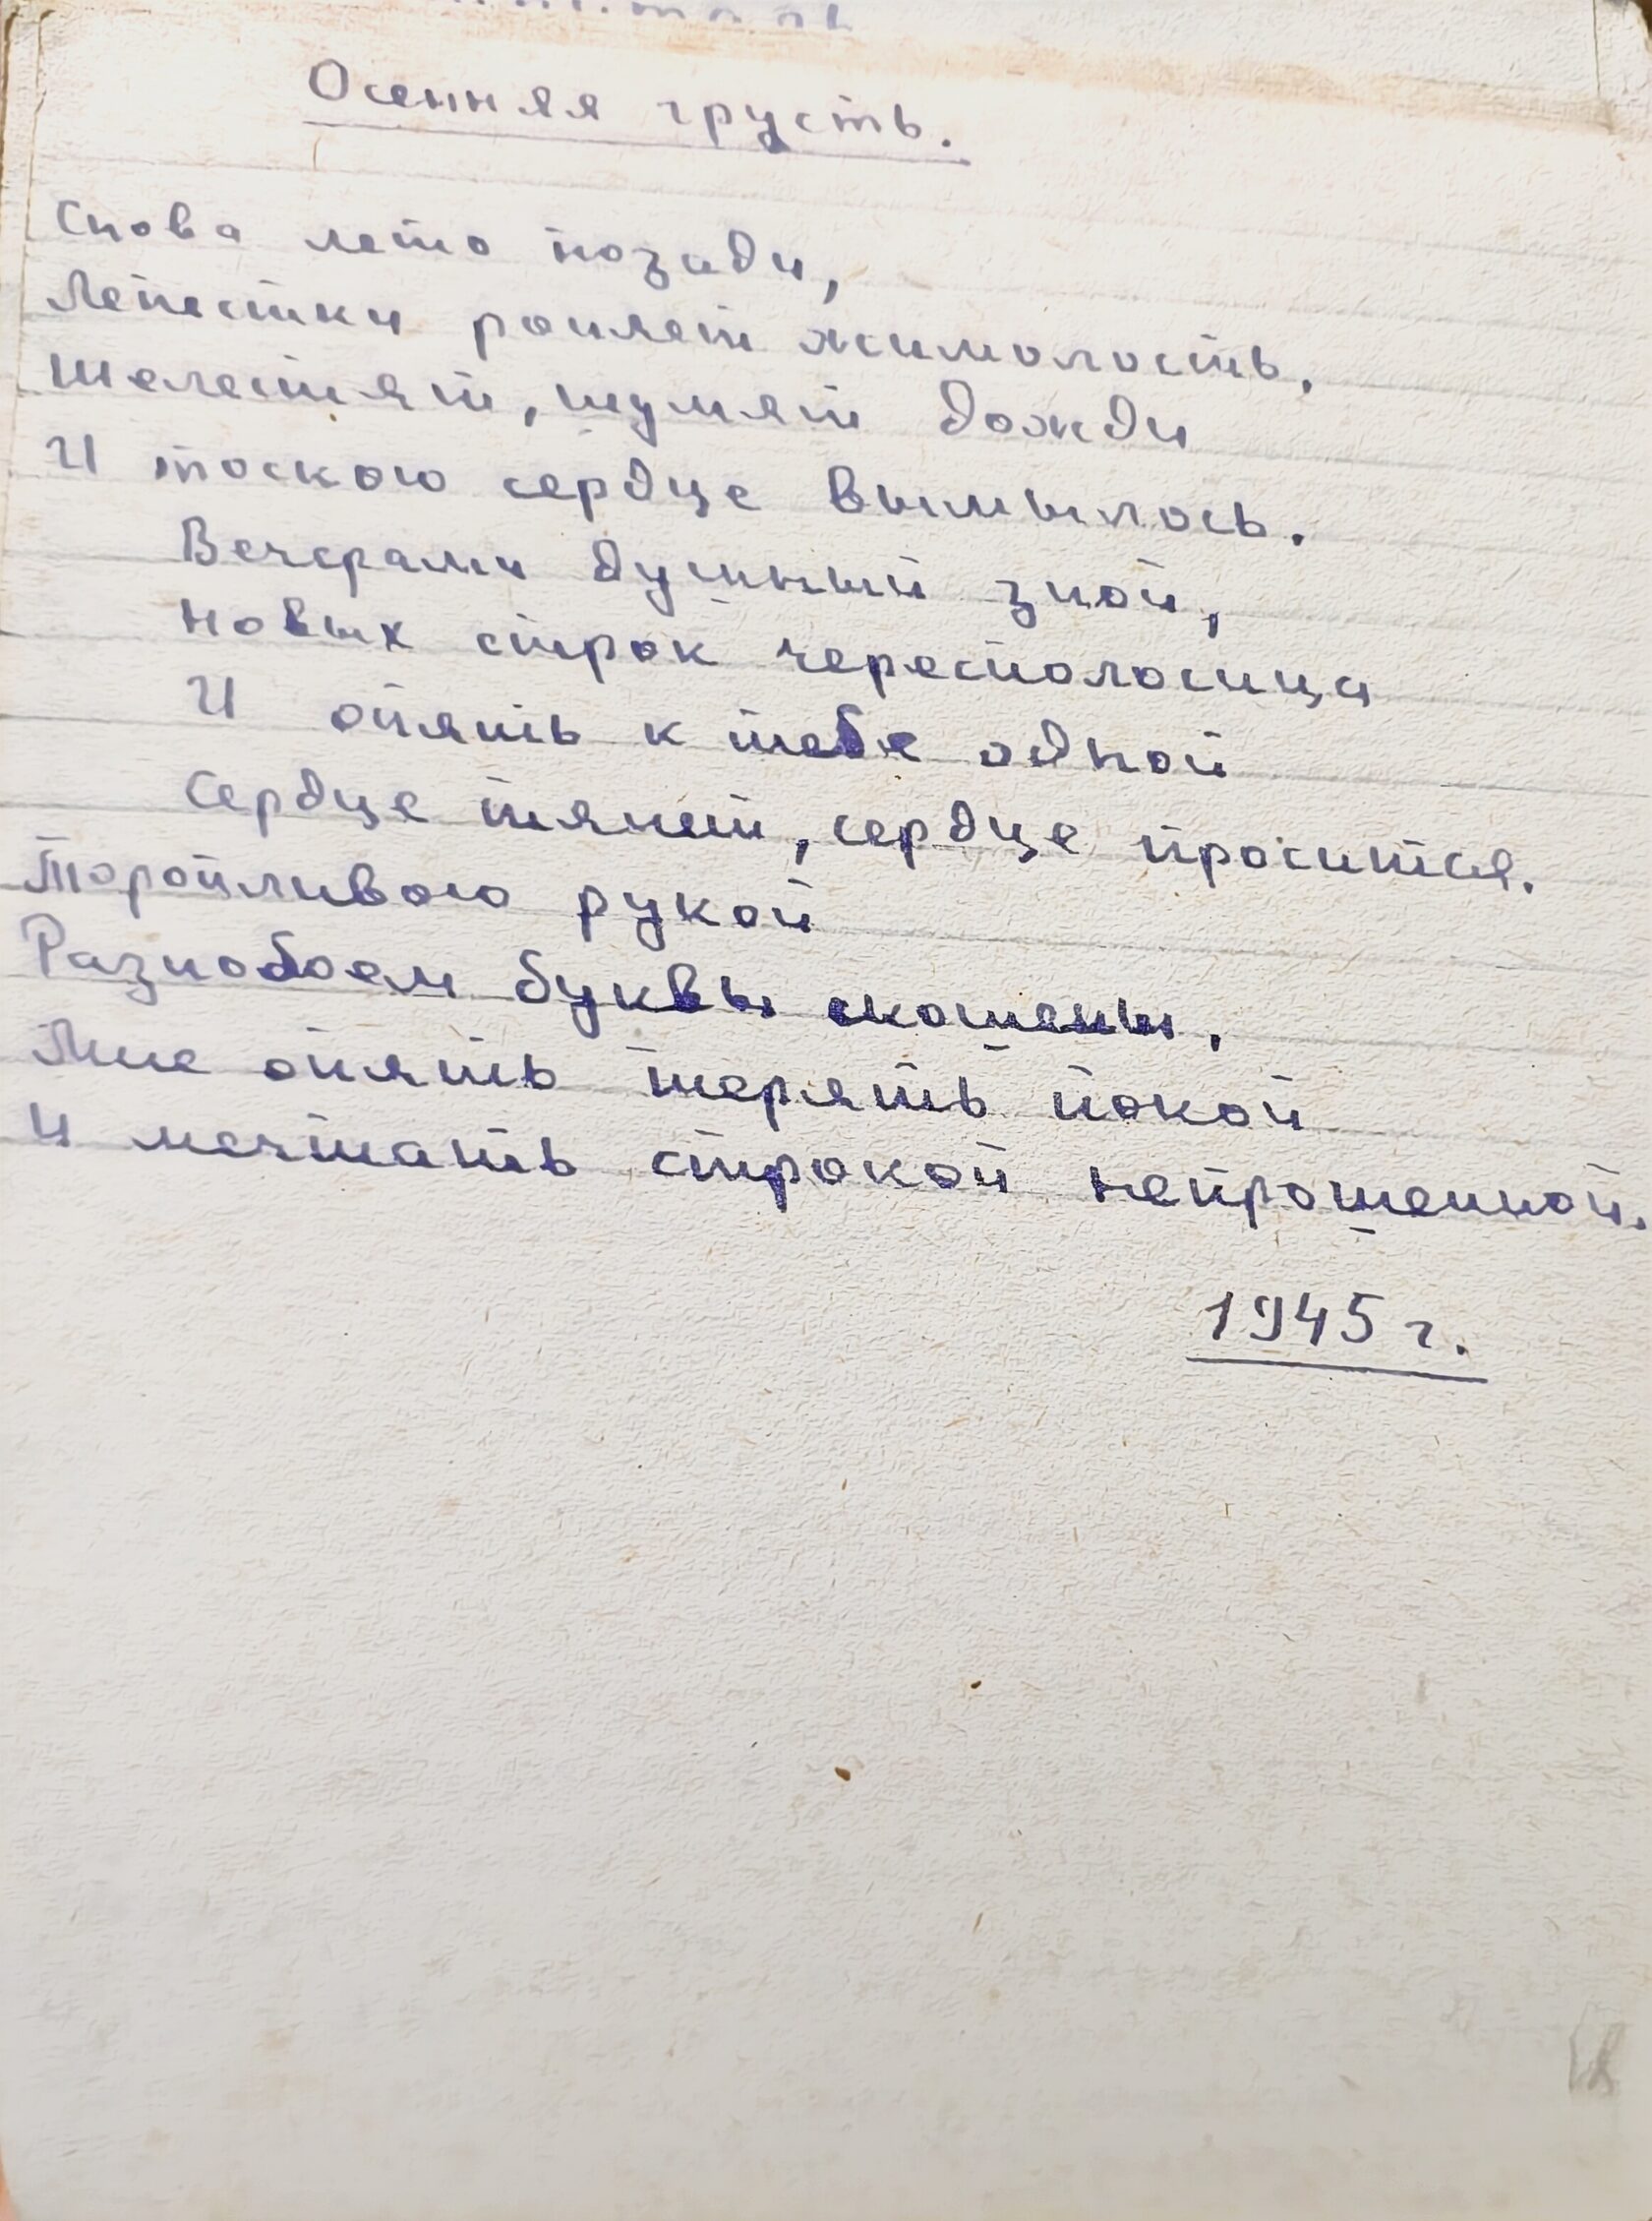 Осенняя грусть.
Снова лето позади,
Лепестки роняет жимолость.
Шелестят, шумят дожди
И тоскою сердце вымылось.
Вечерами душный зной,
Новых строк чересполосица
И опять к тебе одной
Сердце тянет, сердце просится.
Торопливою рукой
Разнобоем буквы скошены,
Мне опять терять покой
И мечтать строкой непрошенной.
1945 г.